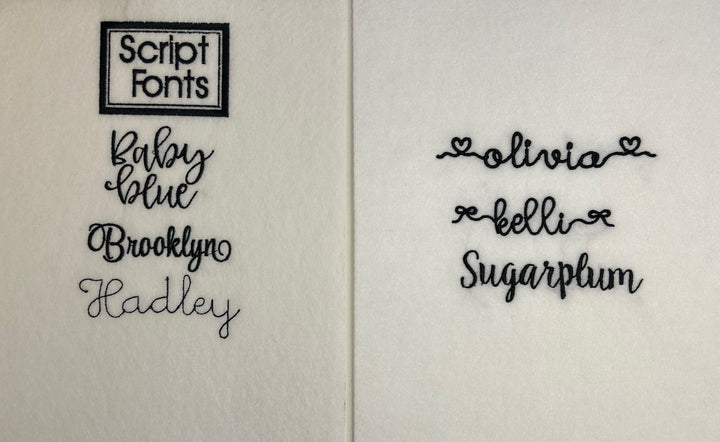 Script
Fonts
Baby
blue
Brooklyn
Hadley
olivia
kelli
Sugarplum